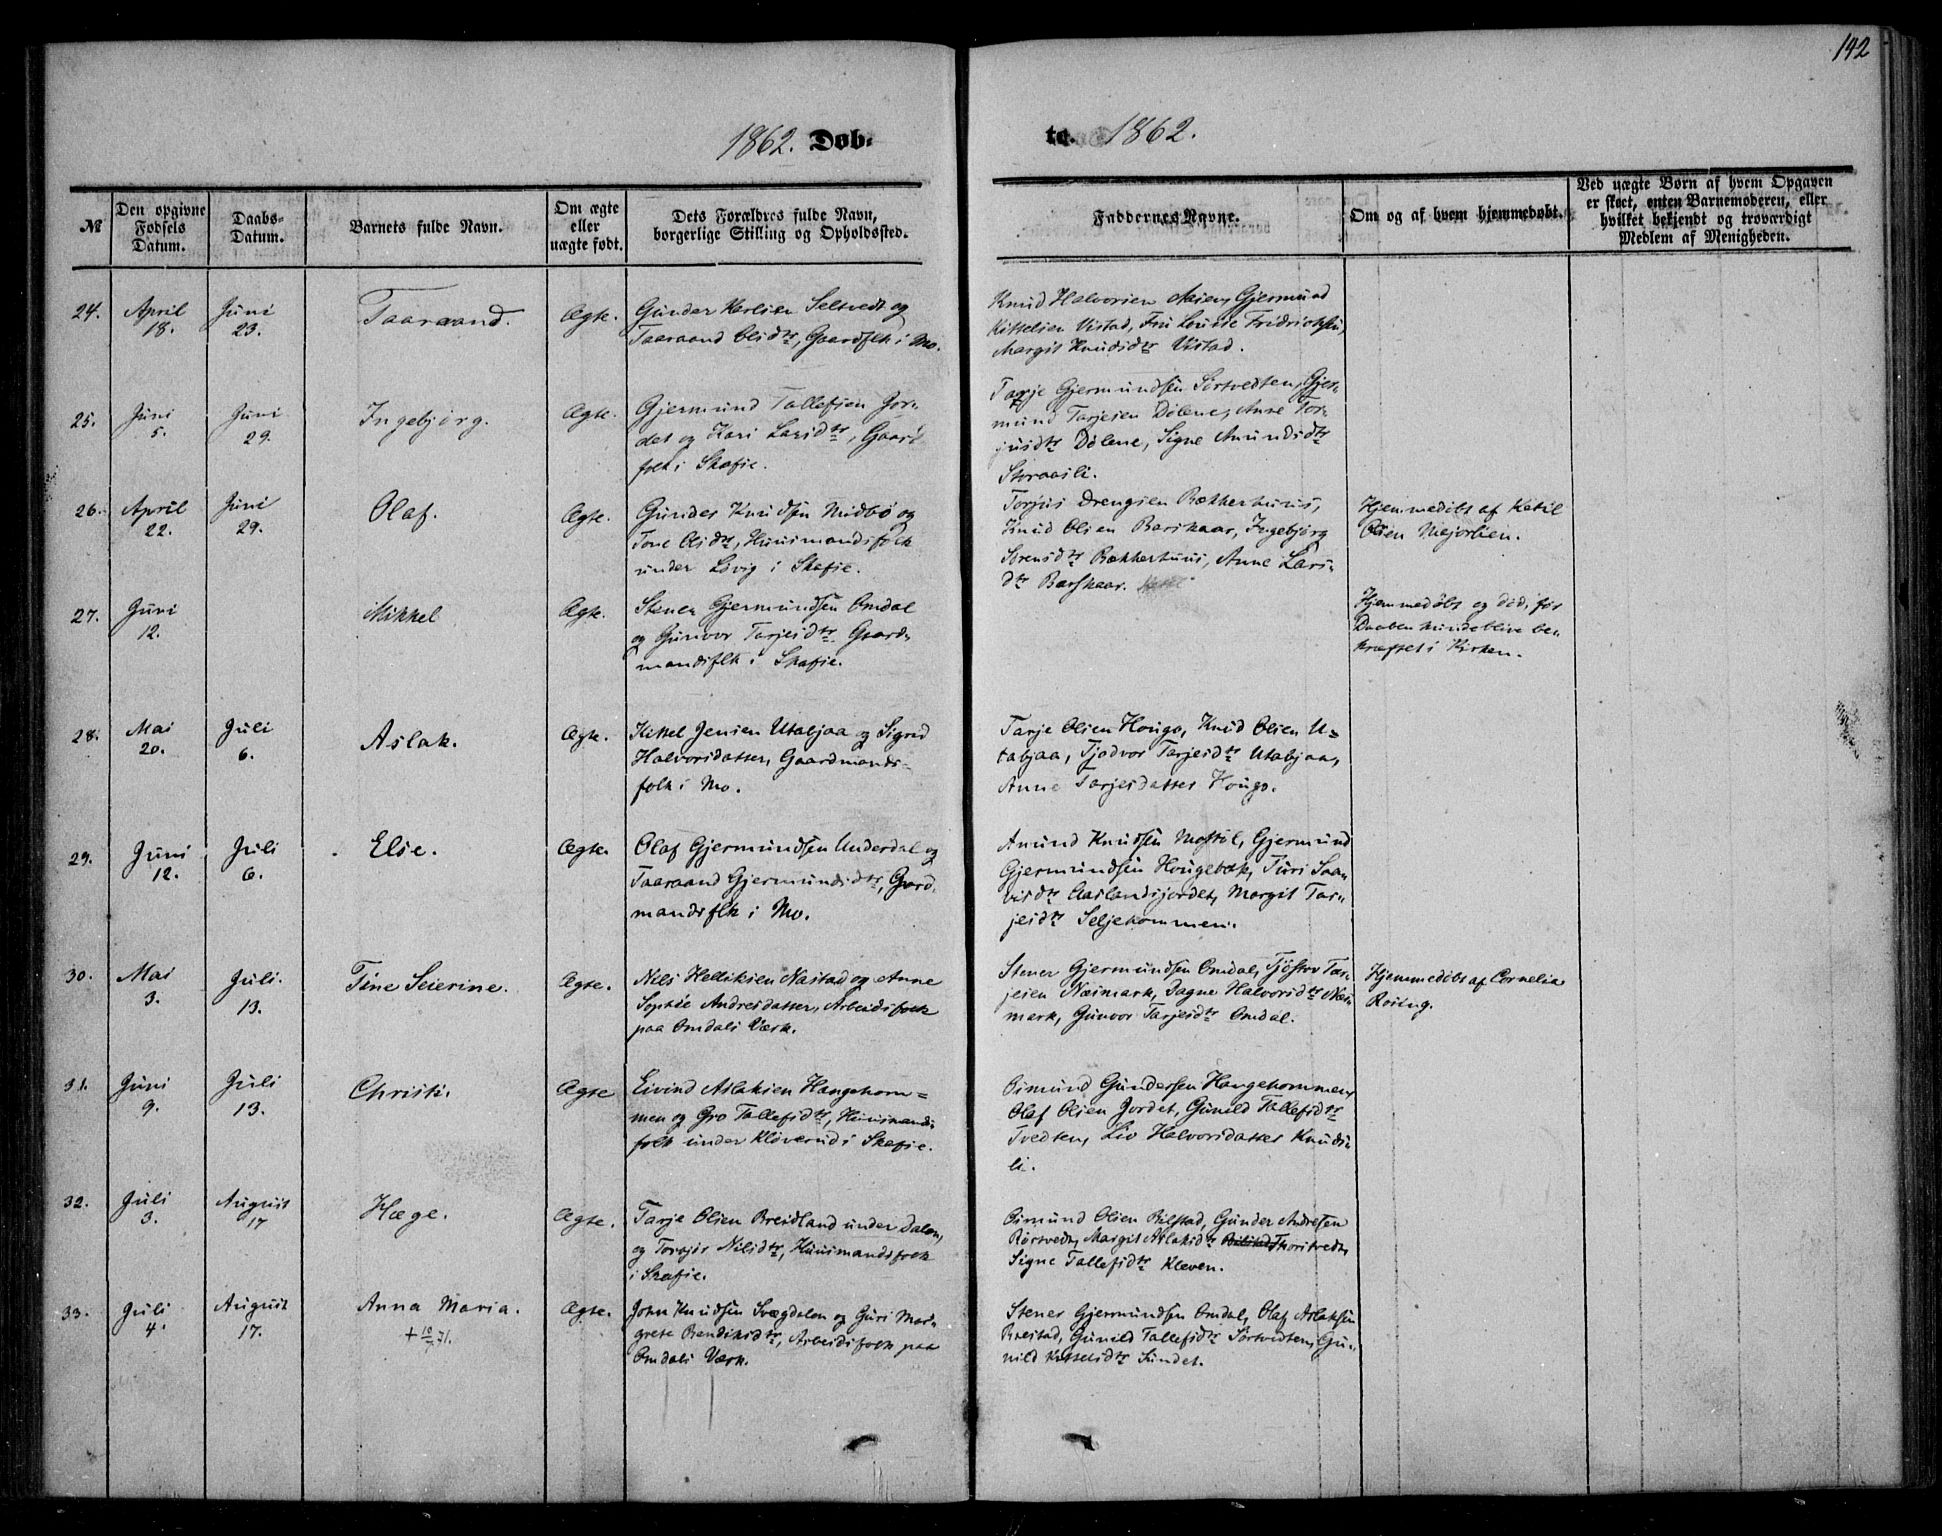 142
1862. Døb-
te. 1862.
№
Den opgivne
Fødsels
Datum.
Daabs-
Datum.
Barnets fulde Navn.
Om ægte
eller
uægte født.
Dets Forældres fulde Navn,
borgerlige Stilling og Opholdssted.
Faddernes Navne.
Om og af hvem hjemmedøbt.
Ved uægte Børn af hvem Opgaven
er skeet, enten Barnemoderen, eller
hvilket bekjendt og troværdigt
Medlem af Menigheden.
24.
April
18.
Juni
23.
Taaraand.
Ægte.
Gunder Seltvedt og
Taaraand Olsdtr, Gaardflk i Mo.
Knud Halvorsen Gjermund
Kittelsen Vistad, Fru Louise
Margit Knudsdtr Vistad.
25.
Juni
5.
Juni
29.
Ingebjørg.
Ægte.
Gjermund Tallefsen Jor-
det og Kari Larsdtr, Gaard
folk i Skafse.
Tarje Gjermundsen Sortvedten, Gjer-
mund Tarjesen Dølene, Anne Tor-
jusdtr Dølene, Signe Amundsdtr
Storaasli.
26.
April
22.
Juni
29.
Olaf.
Ægte.
Gunder Knudsen Midbø og
Tone Olsdtr, Huusmandsfolk
under Løvig i Skafse.
Torjus Drengsen Bækkerhuus,
Knud Olsen Barskaar, Ingebjørg
Sørensdtr Bækkerhuus, Anne Lars-
dtr Barskaar.
Hjemmedøbt af Ketil
Olsen Mejorlien.
27.
Juni
12.
Mikkel
Ægte.
Stener Gjermundsen Omdal
og Gunvor Tarjesdtr Gaard-
mandsflk i Skafse.
Hjemmedøbt og død, før
Daaben kunde blive be-
kræftet i Kirken.
28.
Mai
20.
Juli
6.
Aslak.
Ægte.
Kittel Jensen Utabjaa og Sigrid
Halvorsdatter, Gaardmands-
folk i Mo.
Tarje Olsen Hougo, Knud Olsen U-
tabjaa, Tjodvor Tarjesdtr Utabjaa,
Anne Tarjesdatter Hougo.
29.
Juni
12.
Juli
6.
Else.
Ægte.
Olaf Gjermundsen Underdal og
Taaraand Gjermundsdtr, Gard-
mandsflk i Mo.
Amund Knudsen Mostøl, Gjermund
Gjermundsen Hougebak, Turi Saan-
visdtr Aaslandsjordet, Margit Tar-
jesdtr Seljekommen.
30.
Mai
3.
Juli.
13.
Tine Seierine.
Ægte.
Nils Helliksen Nastad og Anne
Sophie Andreasdatter, Arbeidsfolk
paa Omdals Værk.
Stener Gjermundsen Omdal, Tjøstov Tar-
jeisen Næsmark, Dagne Halvorsdtr Næs-
mark, Gunvor Tarjesdtr Omdal.
Hjemmedøbt af Cornelia
Rosing.
31.
Juni
9.
Juli
13.
Christi.
Ægte
Eivind Aslaksen Haugekom-
men og Gro Tallefsdtr, Huusmands-
folk under Kløverud i Skafse.
Osmund Gundersen Haugekommen,
Olaf Olsen Jordet, Gunild Tallefsdtr
Tvedten, Liv Halvorsdatter Knuds-
li.
32.
Juli
3.
August
17
Hæge.
Ægte.
Tarje Olsen Breidland under Dalen,
og Torbjør Nilsdtr, Huusmandsfolk
i Skafse.
Osmund Olsen Bilstad, Gunder Andresen
Rørtvedt, Margit Aslaksdtr Thoritvedt,
Signe Tallefsdtr Kleven.
33.
Juli
4.
August
17.
Anna Maria.
+ 10/7 71.
Ægte.
John Knudsen Svægdalen og Guri Mar-
grete Bendiksdtr, Arbeidsfolk paa
Omdals Værk.
Stener Gjermundsen Omdal, Olaf Aslaksen
Breistad, Gunild Tallefsdtr Sortvedten, Gu-
nild Kittelsdtr Sundet.